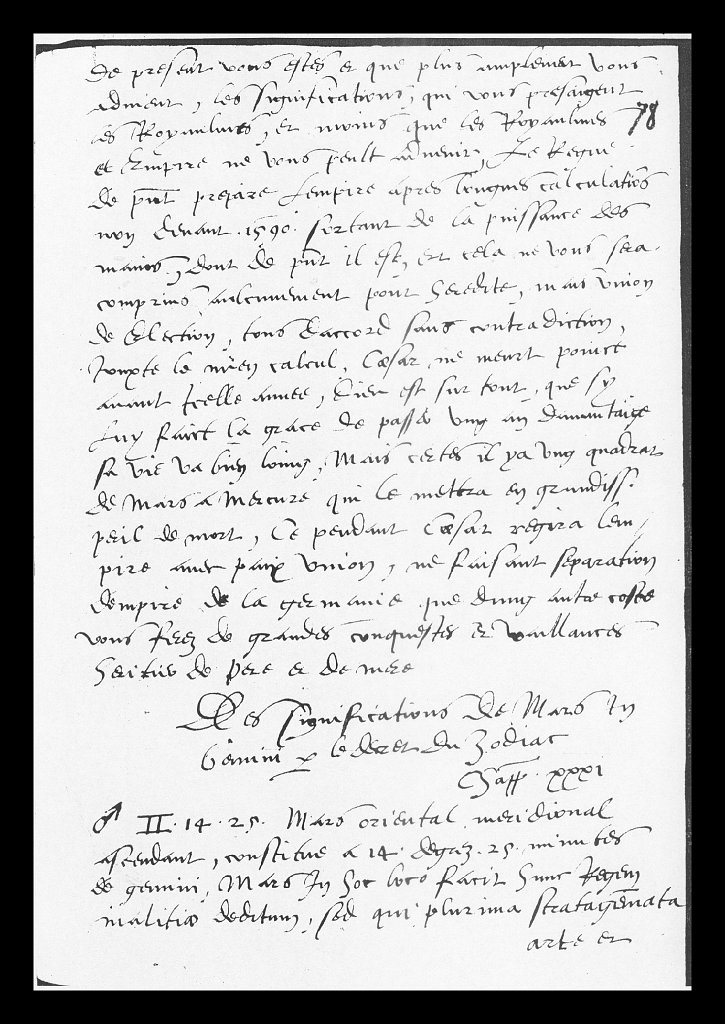 de present vous estes et que plus amplement vous
advient, les significations, qui vous presaigent
les Royaulmes, et moins que les Royaulmes
78
et Empire ne vous peult advenir, Le Regne
de pnt prepare Lempire apres longues calculatiōs
non devant .1590. sortant de la puissance des
mains, dont de pnt il est, et cela ne vous sera
comprins aulcunement pour heredite, mais union
de Election, tous daccord sans contradiction,
Jouxte le mien calcul, Cæsar ne meurt poinct
avant Icelle annee, Dieu est sur tout, que sy
Luy faict la grace de passer ung an davantaige
sa vie va bien loing, Mais certes il ya ung quadrat
de Mars a Mercure qui le mettra en grandiss.
peril de mort, Ce pendant Cæsar regira lem
pire avec paix union, ne faisant separation
dempire de la germanie que dung autre coste
vous ferez de grandes conquestes et vaillances
heritier de pere et de mere
Des significations de Mars In
Gemini p le decret du Zodiac
Chapp. xxxi
♂ II. 14. 25. Mars oriental meridional
ascendant, constitue a 14. degrz. 25 minutes
de gemini, Mars In hoc loco facit hunc Regem
malitia deditum, sed qui plurima stratagēmata
arte et